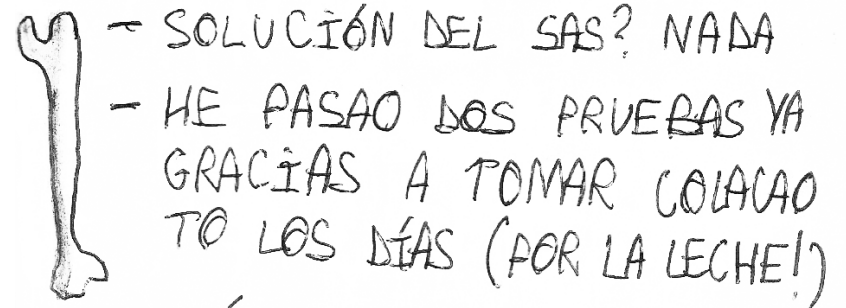 - SOLUCIÓN DEL SAS? NADA
- HE PASAO DOS PRUEBAS YA
GRACIAS A TOMAR COLACAO
TO LOS DÍAS (POR LA LECHE!)